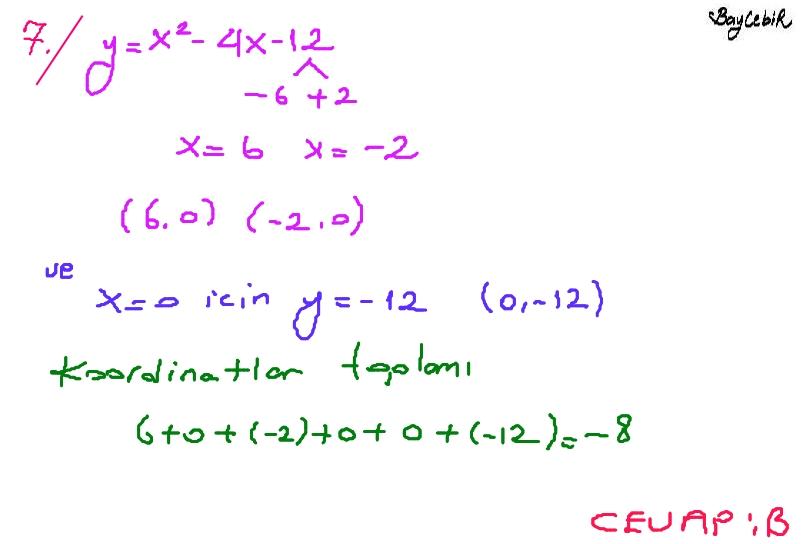 BayCebiR
7./ y=x²-4x-12
-6 +2
x=6 x=-2
(6,0) (-2,0)
ve
x=0 icin y=-12 (0,-12)
Koordinatlar toplamı
6+0+(-2)+0+0+(-12)=-8
CEVAP:B